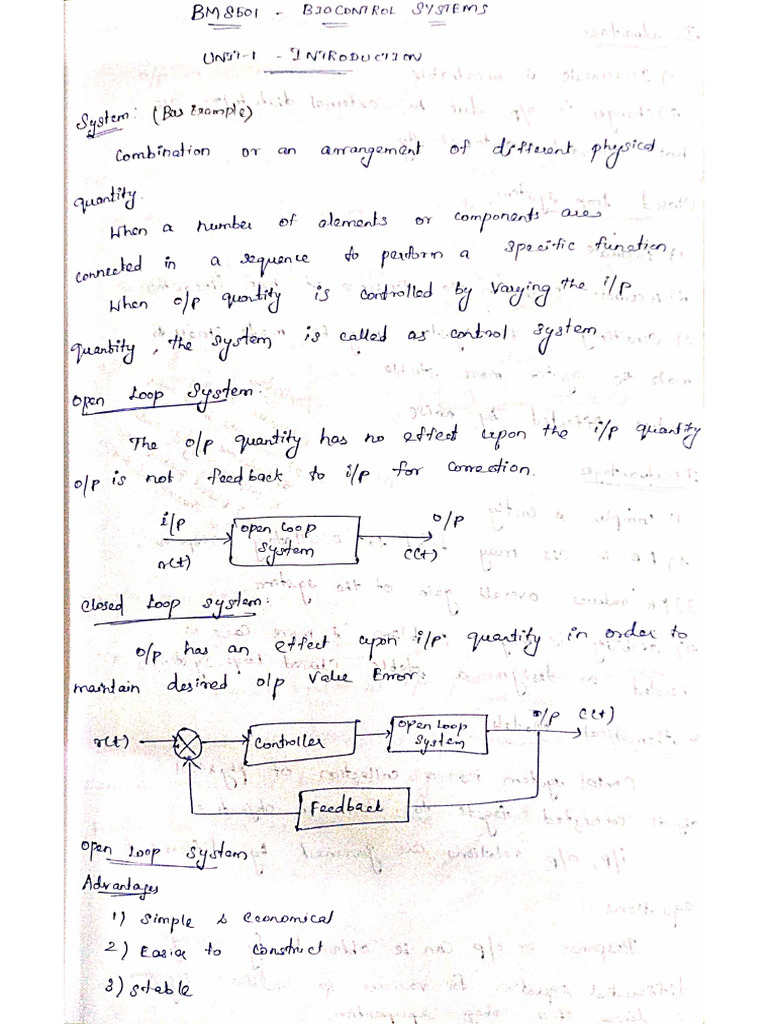 BM8501 - BIOCONTROL SYSTEMS
UNIT-1 - INTRODUCTION
System: (Bus Example)
Combination or an arrangement of different physical
quantity.
When a number of elements or components are
connected in a sequence to perform a specific function
When o/p quantity is controlled by varying the i/p
quantity, the system is called as control system
Open Loop System:
The o/p quantity has no effect upon the i/p quantity
o/p is not feedback to i/p for correction.
i/p open loop o/p
r(t) system c(t)
Closed Loop System:
o/p has an effect upon i/p quantity in order to
maintain desired o/p value Error:
r(t) Controller open Loop system o/p c(t)
Feedback
Open Loop System
Advantages
1) Simple & economical
2) Easier to construct
3) Stable